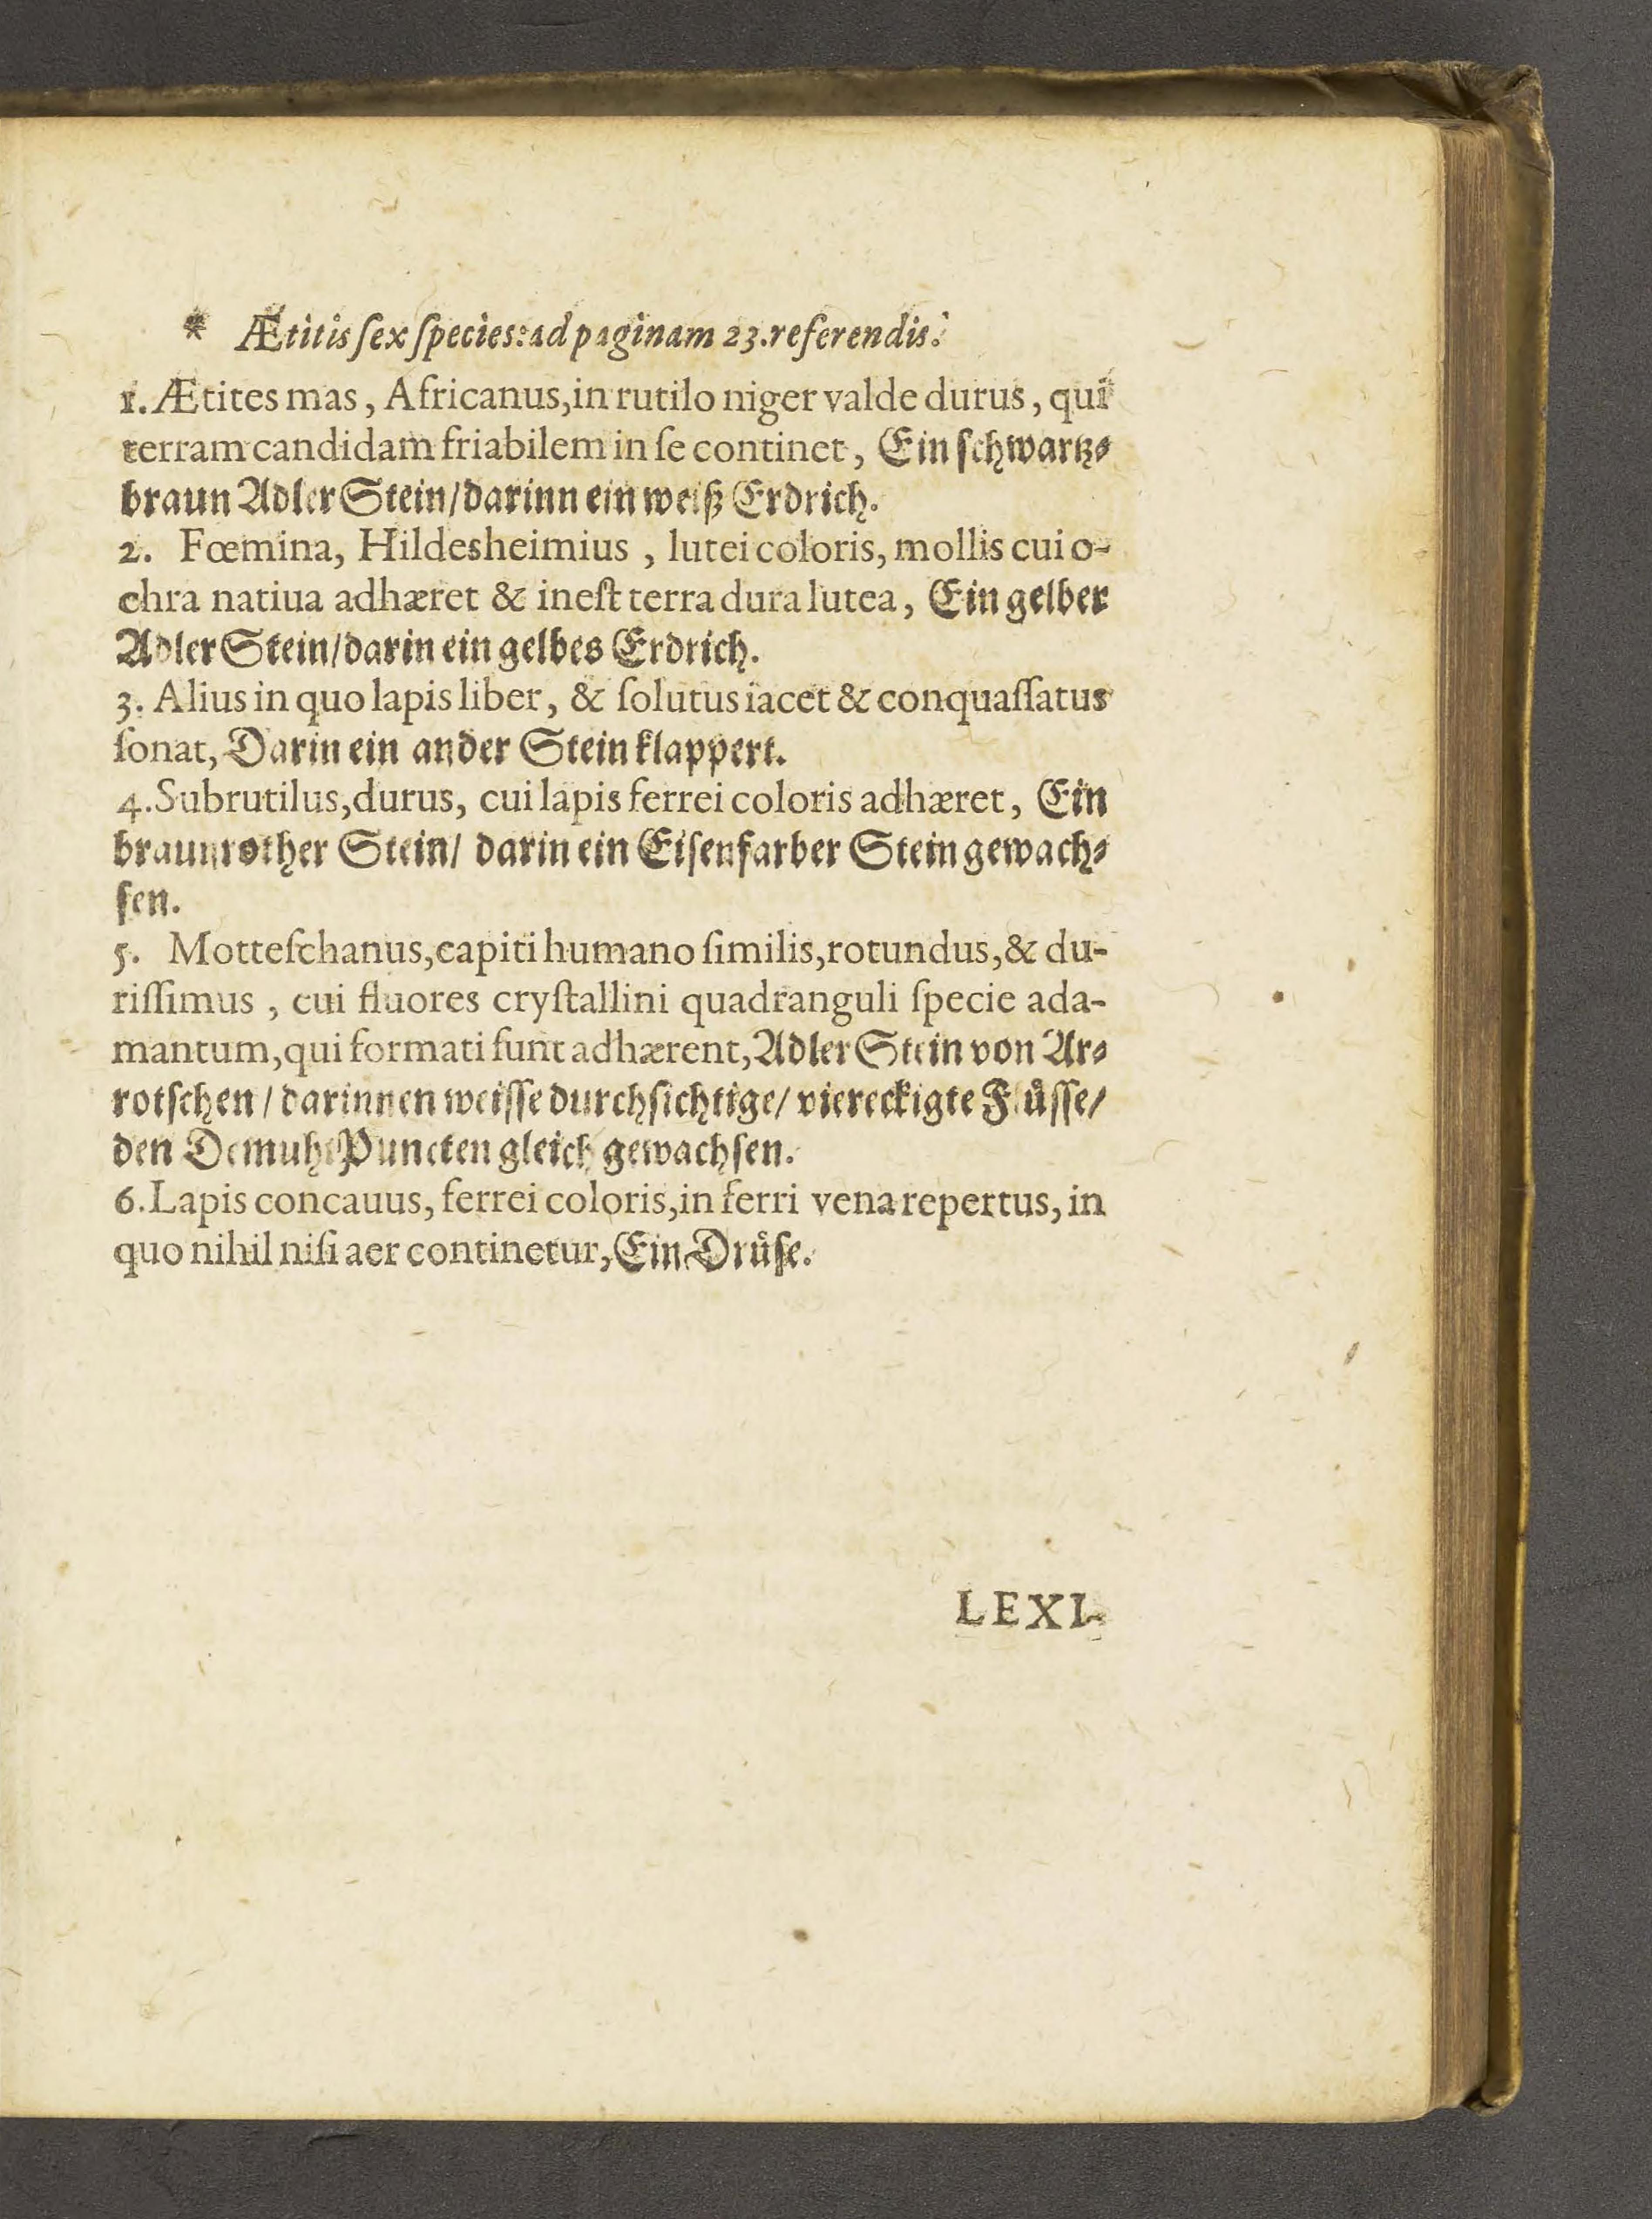 * Ætitis ſex ſpecies: ad paginam 23. referendis.
1. Ætites mas, Africanus, in rutilo niger valde durus, qui
terram candidam friabilem in ſe continet, Ein ſchwartz⸗
braun Adler Stein/ darinn ein weiß Erdrich.
2. Fœmina, Hildesheimius, lutei coloris, mollis cui o-
chra natiua adhæret & ineſt terra dura lutea, Ein gelber
Adler Stein/ darin ein gelbes Erdrich.
3. Alius in quo lapis liber, & ſolutus iacet & conquaſſatus
ſonat, Darin ein ander Stein klappert.
4. Subrutilus, durus, cui lapis ferrei coloris adhæret, Ein
braunrother Stein/ darin ein Eiſenfarber Stein gewach⸗
ſen.
5. Motteſchanus, capiti humano ſimilis, rotundus, & du-
riſſimus, cui fluores cryſtallini quadranguli ſpecie ada-
mantum, qui formati ſunt adhærent, Adler Stein von Ar⸗
rotſchen/ darinnen weiſſe durchſichtige/ viereckigte Flüſſe/
den Demuht Puncten gleich gewachſen.
6. Lapis concauus, ferrei coloris, in ferri vena repertus, in
quo nihil niſi aer continetur, Ein Drüſe.
LEXI-